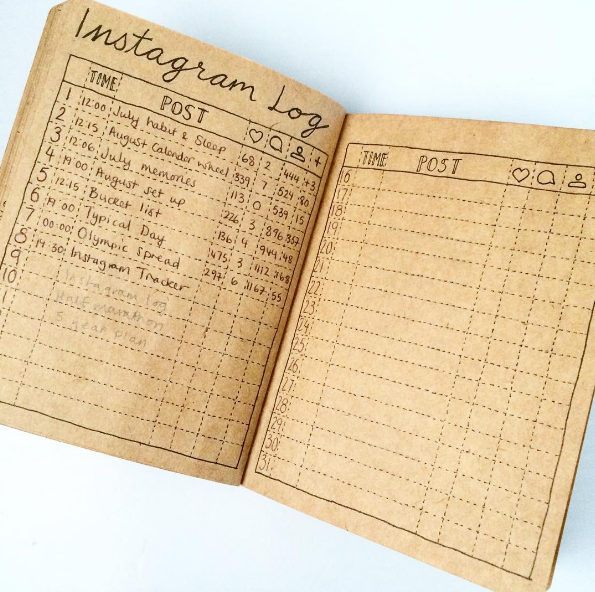 Instagram Log
TIME POST +
1 12:00 July habit & Sleep 68 2 444 +3
2 12:15 August Calendar wheel 339 7 524 80
3 12:06 July memories 113 0 539 15
4 19:00 August set up 226 3 896 357
5 12:15 Bucket list 136 4 944 48
6 19:00 Typical Day 475 3 1112 168
7 00:00 Olympic spread 297 6 1167 55
8 19:30 Instagram Tracker
9 Instagram log
10 Half marathon
5 year plan
TIME POST
16
17
18
19
20
21
22
23
24
25
26
27
28
29
30
31